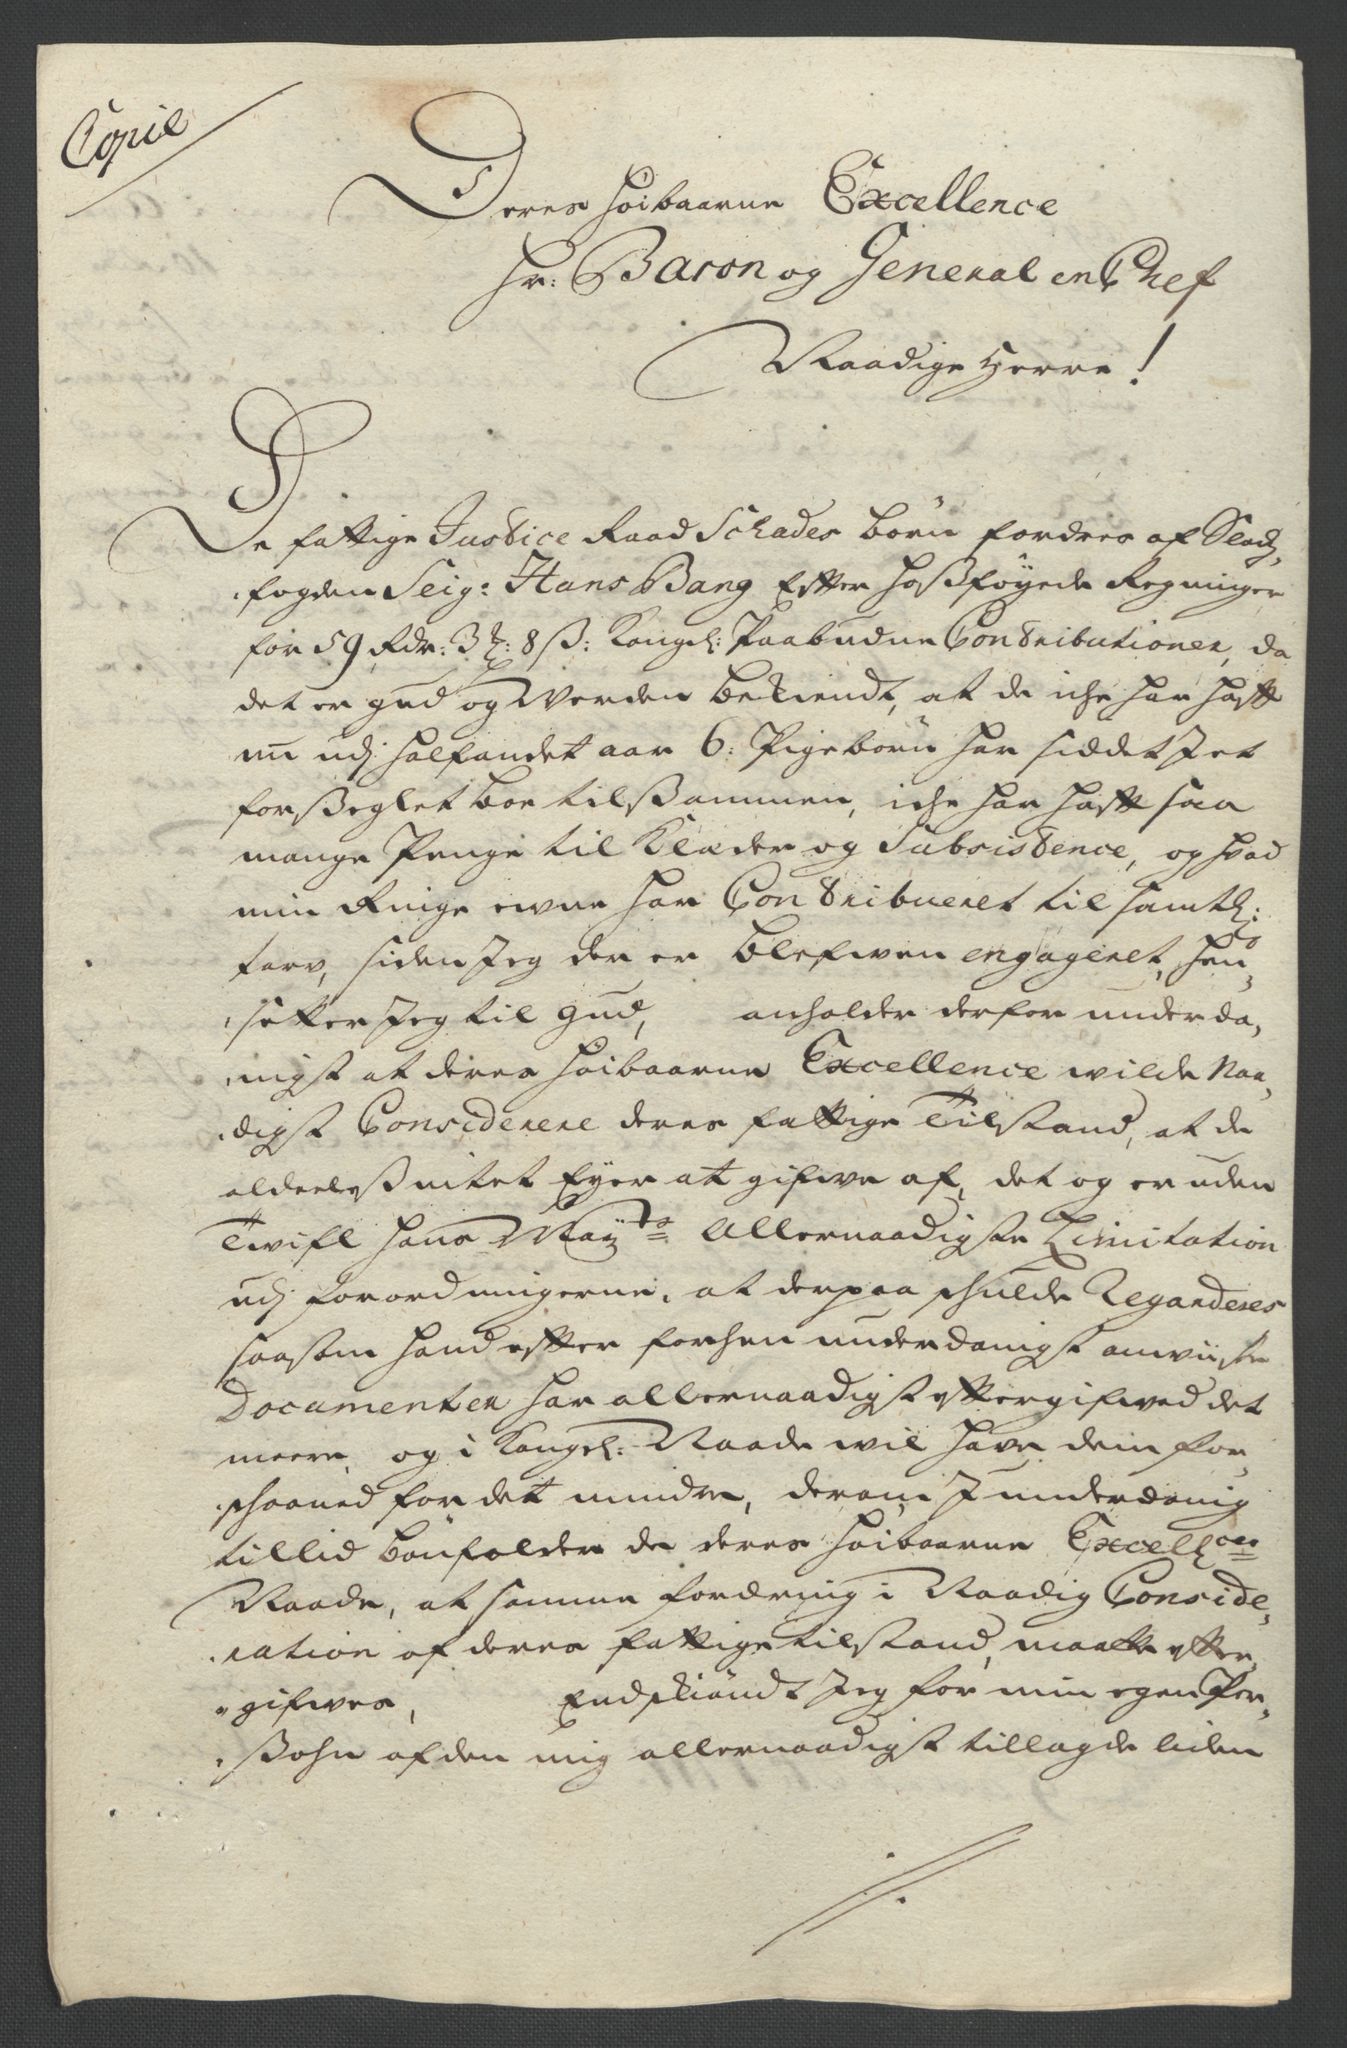 Copie
Deres Höibaarne Excellence
Hr: Baron og General en Chef
Naadige Herre!
De fattige Justice Raad Schades börn fordres af Slodz,
fogden Seig: Hans Bang Efter hosföyede Regninger
for 59 Rdr: 3 : 8 ß: Kongel: Paabudne Contributioner, da
det er gud og Werden bekiendt, at de iche har haft
nu udj halfandet aar 6: Pigebörn har siddet J et
forßeglet boe tilßammen, iche har haft saa
mange Penge til Klæder og Subsistence, og hvad
min Ringe evne har Contribueret til samtl:
tarv, siden Jeg der er blefwen engageret, hen,
setter Jeg til Gud, anholder derfor underda,
nigst at deres Höibaarne Excellence wilde Naa,
digst Considerere deres fattige Tilstand, at de
aldeelis intet Eyer at gifwe af, det og er uden
Twifl hans May:ts Allernaadigste Limitation
udj forordningerne, at derpaa schulde Regarderes
saasom hand efter forhen underdanigst anviiste
Documenter har allernaadigst eftergifwed det
meere, og i Kongel: Naade wil have dem for,
schaaned for det mindre, derom J underdanig
tillid bönfalder de deres Höibaarne Excellces
Naade, at samme fordring i Naadig Conside,
ration af deres fattige tilstand, maatte efter,
gifwes, Endskiöndt Jeg for min egen Per,
ßohn af den mig allernaadigst tillagde liden